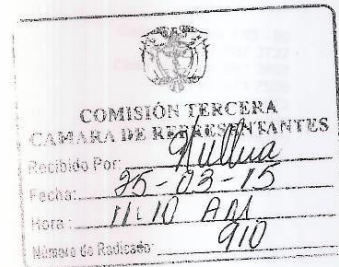 COMISIÓN TERCERA
CAMARA DE REPRESENTANTES
Recibido Por:
Fecha: 25-03-15
Hora: 11:10 AM
Número de Radicado: 910